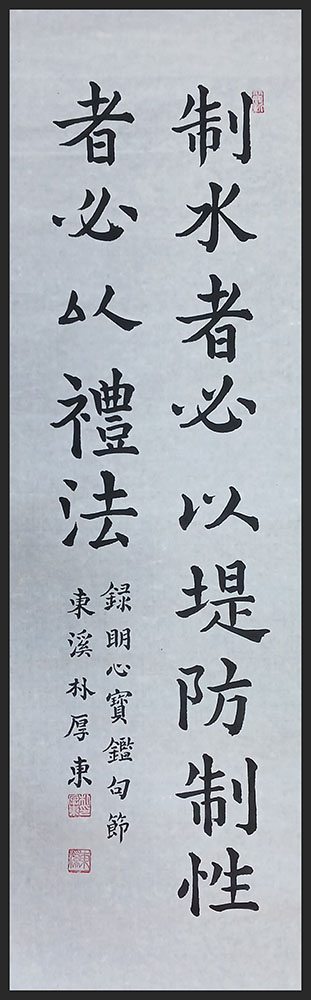 制水者必以堤防制性
者必以禮法
録明心寶鑑句節
東溪朴厚東